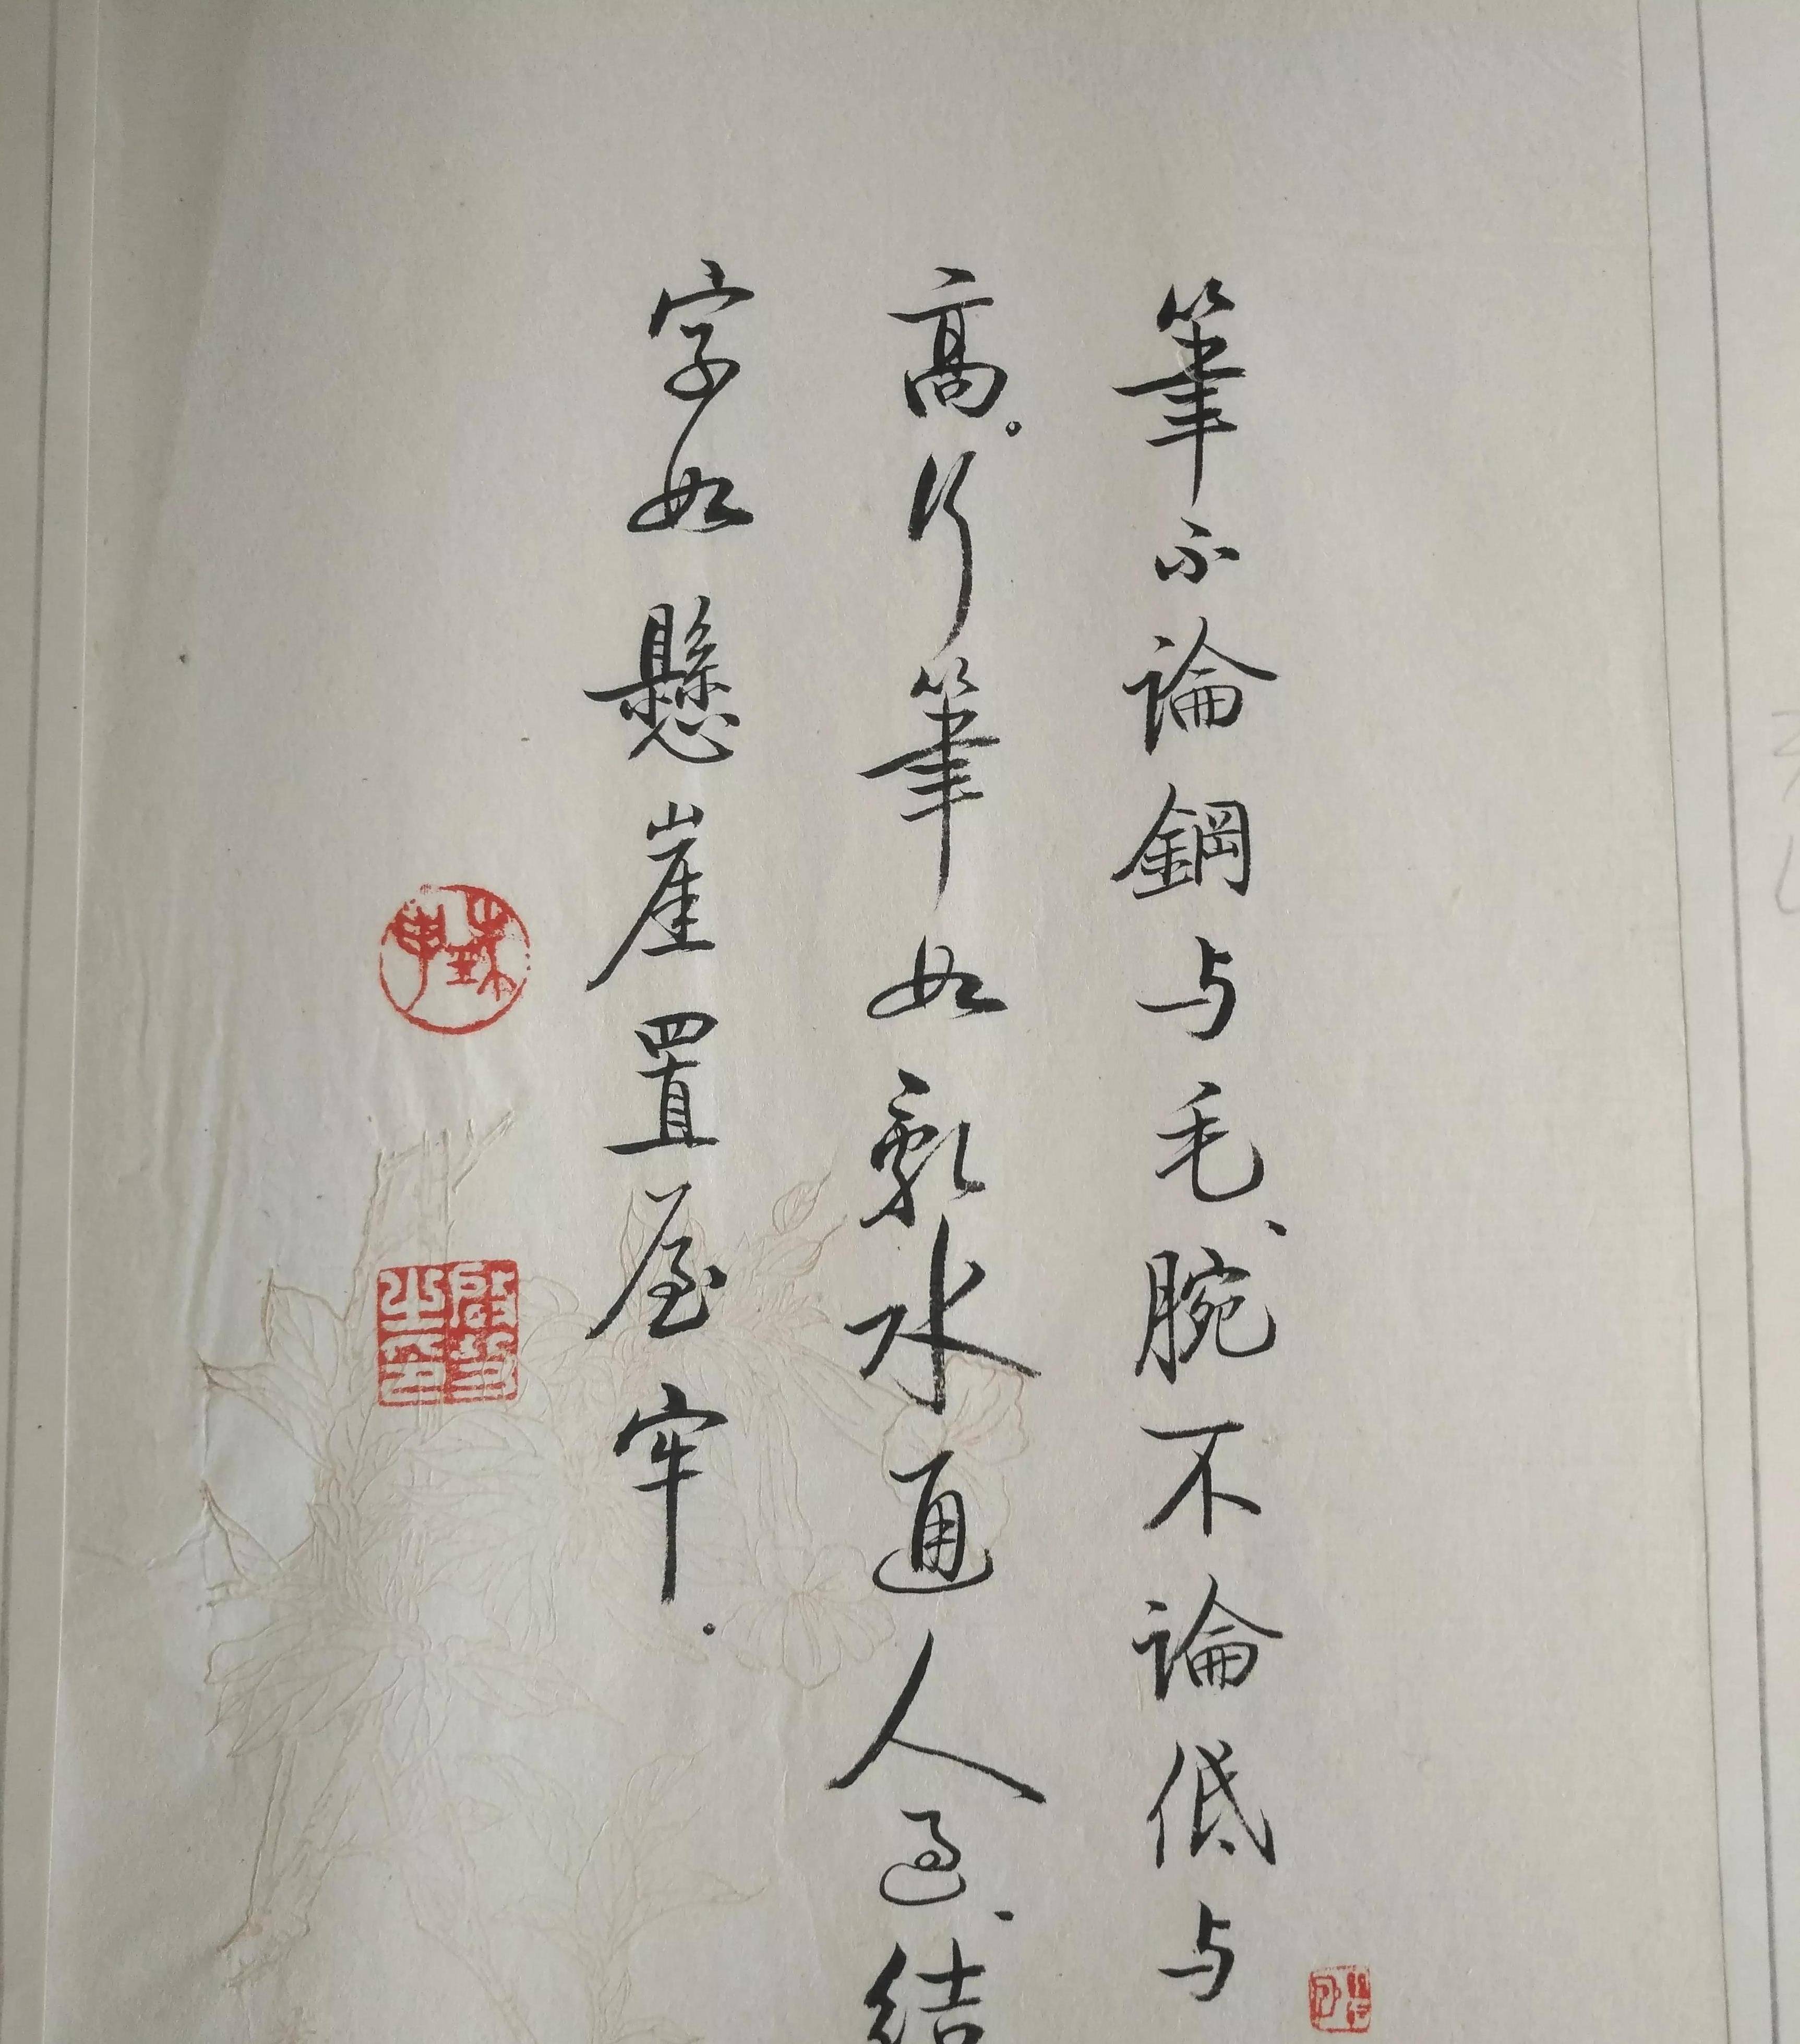 筆不論鋼与毛、腕不論低与
高。行筆如乱水通人过、结
字如懸崖置屋牢。